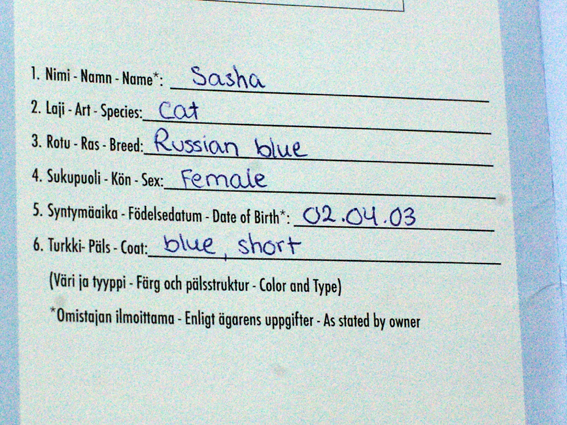 1. Nimi - Namn - Name*: Sasha
2. Laji - Art - Species: Cat
3. Rotu - Ras - Breed: Russian blue
4. Sukupuoli - Kön - Sex: Female
5. Syntymäaika - Födelsedatum - Date of Birth*: 02.04.03
6. Turkki- Päls - Coat: blue, short
(Väri ja tyyppi - Färg och pälsstruktur - Color and Type)
*Omistajan ilmoittama - Enligt ägarens uppgifter - As stated by owner